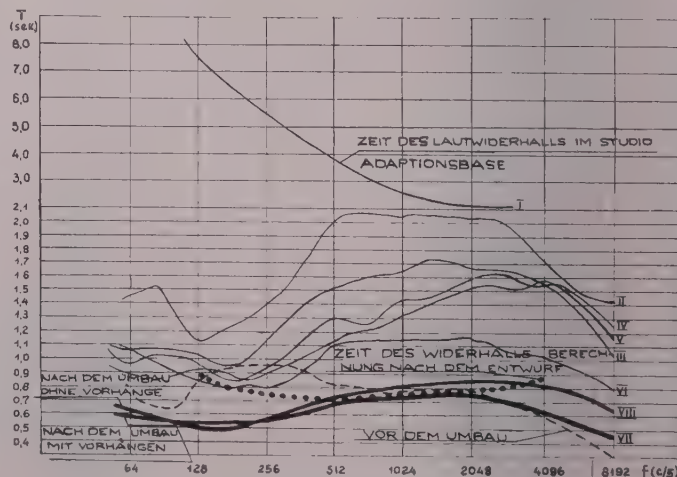 T
(sek)
8,0
7,0
6,0
5,0
4,0
3,0
2,1
2,0
1,9
1,8
1,6
1,4
1,3
1,1
1,0
0,9
0,8
0,7
0,6
0,4
ZEIT DES LAUTWIDERHALLS IM STUDIO
ADAPTIONSBASE
I
II
IV
V
III
VI
VIII
VII
ZEIT DES WIDERHALLS BERECH-
NUNG NACH DEM ENTWURF
NACH DEM UMBAU
OHNE VORHÄNGE
NACH DEM UMBAU
MIT VORHÄNGEN
VOR DEM UMBAU
64 128 256 512 1024 2048 4096 8192 f(c/s)